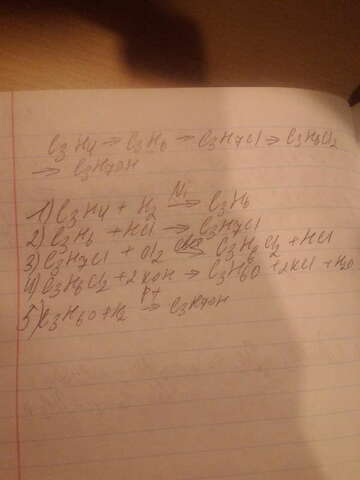 C3H4 → C3H6 → C3H7Cl → C3H6Cl2
→ C3H7OH
1) C3H4 + H2 Ni→ C3H6
2) C3H6 + HCl → C3H7Cl
3) C3H7Cl + Cl2 → C3H6Cl2 + HCl
4) C3H6Cl2 + 2KOH → C3H6O + 2KCl + H2O
5) C3H6O + H2 Pt→ C3H7OH